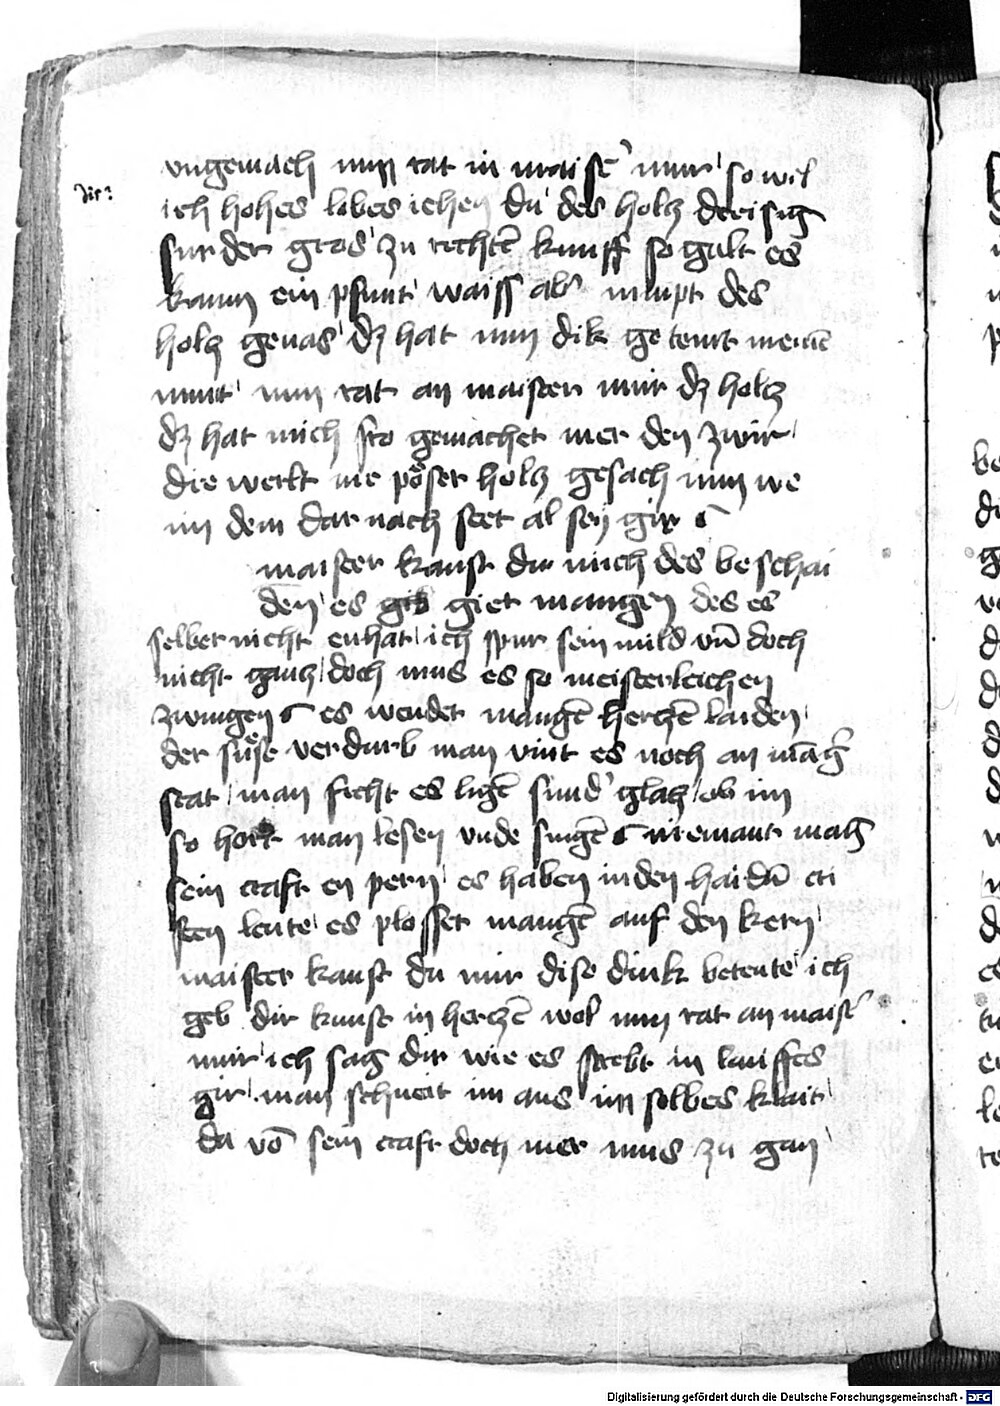 ungemach nun rat in maist' mir so wil
dir
ich hohes lobes iehen du des holcz dreisig
fuder gros zu rechter kunst so gult es
kaum ein pfunt waiss ab' nimpt des
holcz genas dz hat nun dik geteurt meine
nun rat an maister mir dz holcz
dz hat mich fro gemachet mer den zwir
die werlt nie pöser holcz gesach nun we
im dem dar nach stet al sein gir
maister kanst du mich des beschai
den es giet mangen des es
selber nicht enhat ich spur sein mild vn̄ doch
nicht gancz doch mus es so meisterleichen
zwingen es wendet mangē herczē laiden
der süse verdurb man vint es noch an māg'
stat man sicht es ligē sund' glancz ob im
so hort man lesen vnde singē niemant mag
sein craft en pern es haben in den haidn̄ cri
sten leute es plosset mangē auf den kern
maister kanst du mir dise dink beteute ich
geb dir kunst in herczē wol nun rat an maist'
mir ich sag dir wie es strebt in lauffes
gir man schneit im aus im selbes klait
da vō sein craft doch mer mus zu gan
Digitalisierung gefördert durch die Deutsche Forschungsgemeinschaft - DFG